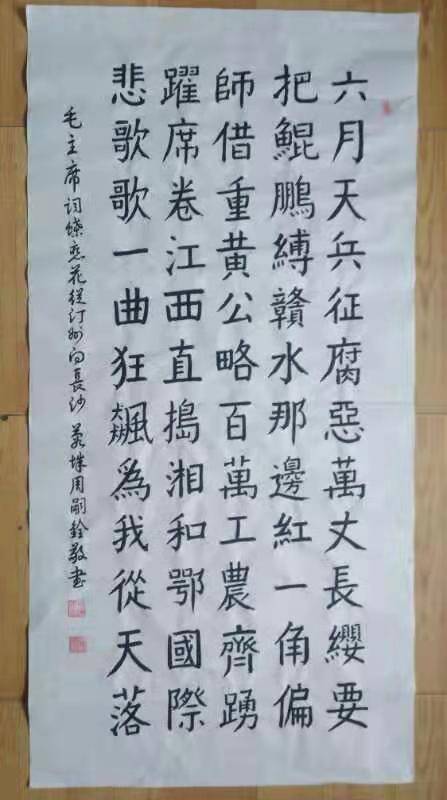 六月天兵征腐惡萬丈長纓要
把鯤鵬縛贛水那邊紅一角偏
師借重黃公略百萬工農齊踴
躍席卷江西直搗湘和鄂國際
悲歌歌一曲狂飆爲我從天落
毛主席词蝶恋花從汀州向長沙 周嗣銓敬書